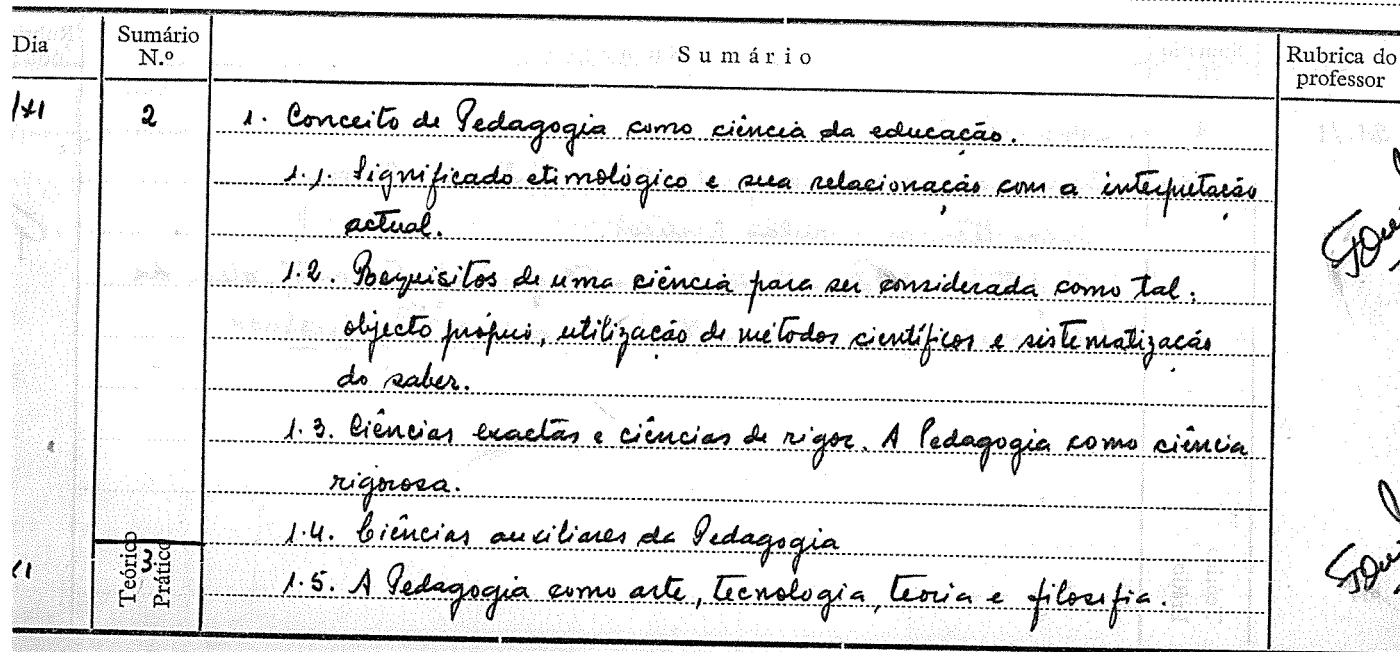 Dia Sumário N.º Sumário Rubrica do professor
2 1. Conceito de Pedagogia como ciência da educação.
1.1. Significado etimológico e sua relacionação com a interpretação
actual.
1.2. Requisitos de uma ciência para ser considerada como tal:
objecto próprio, utilização de métodos científicos e sistematização
do saber.
1.3. Ciências exactas e ciências de rigor. A Pedagogia como ciência
rigorosa.
1.4. Ciências auxiliares da Pedagogia
Teórico 3. Prático
1.5. A Pedagogia como arte, tecnologia, teoria e filosofia.